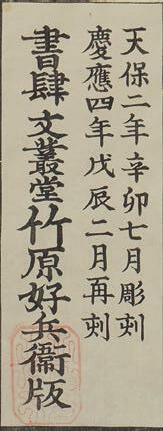 天保二年辛卯七月彫刻
慶應四年戊辰二月再刻
書肆文叢堂竹原好兵衞版